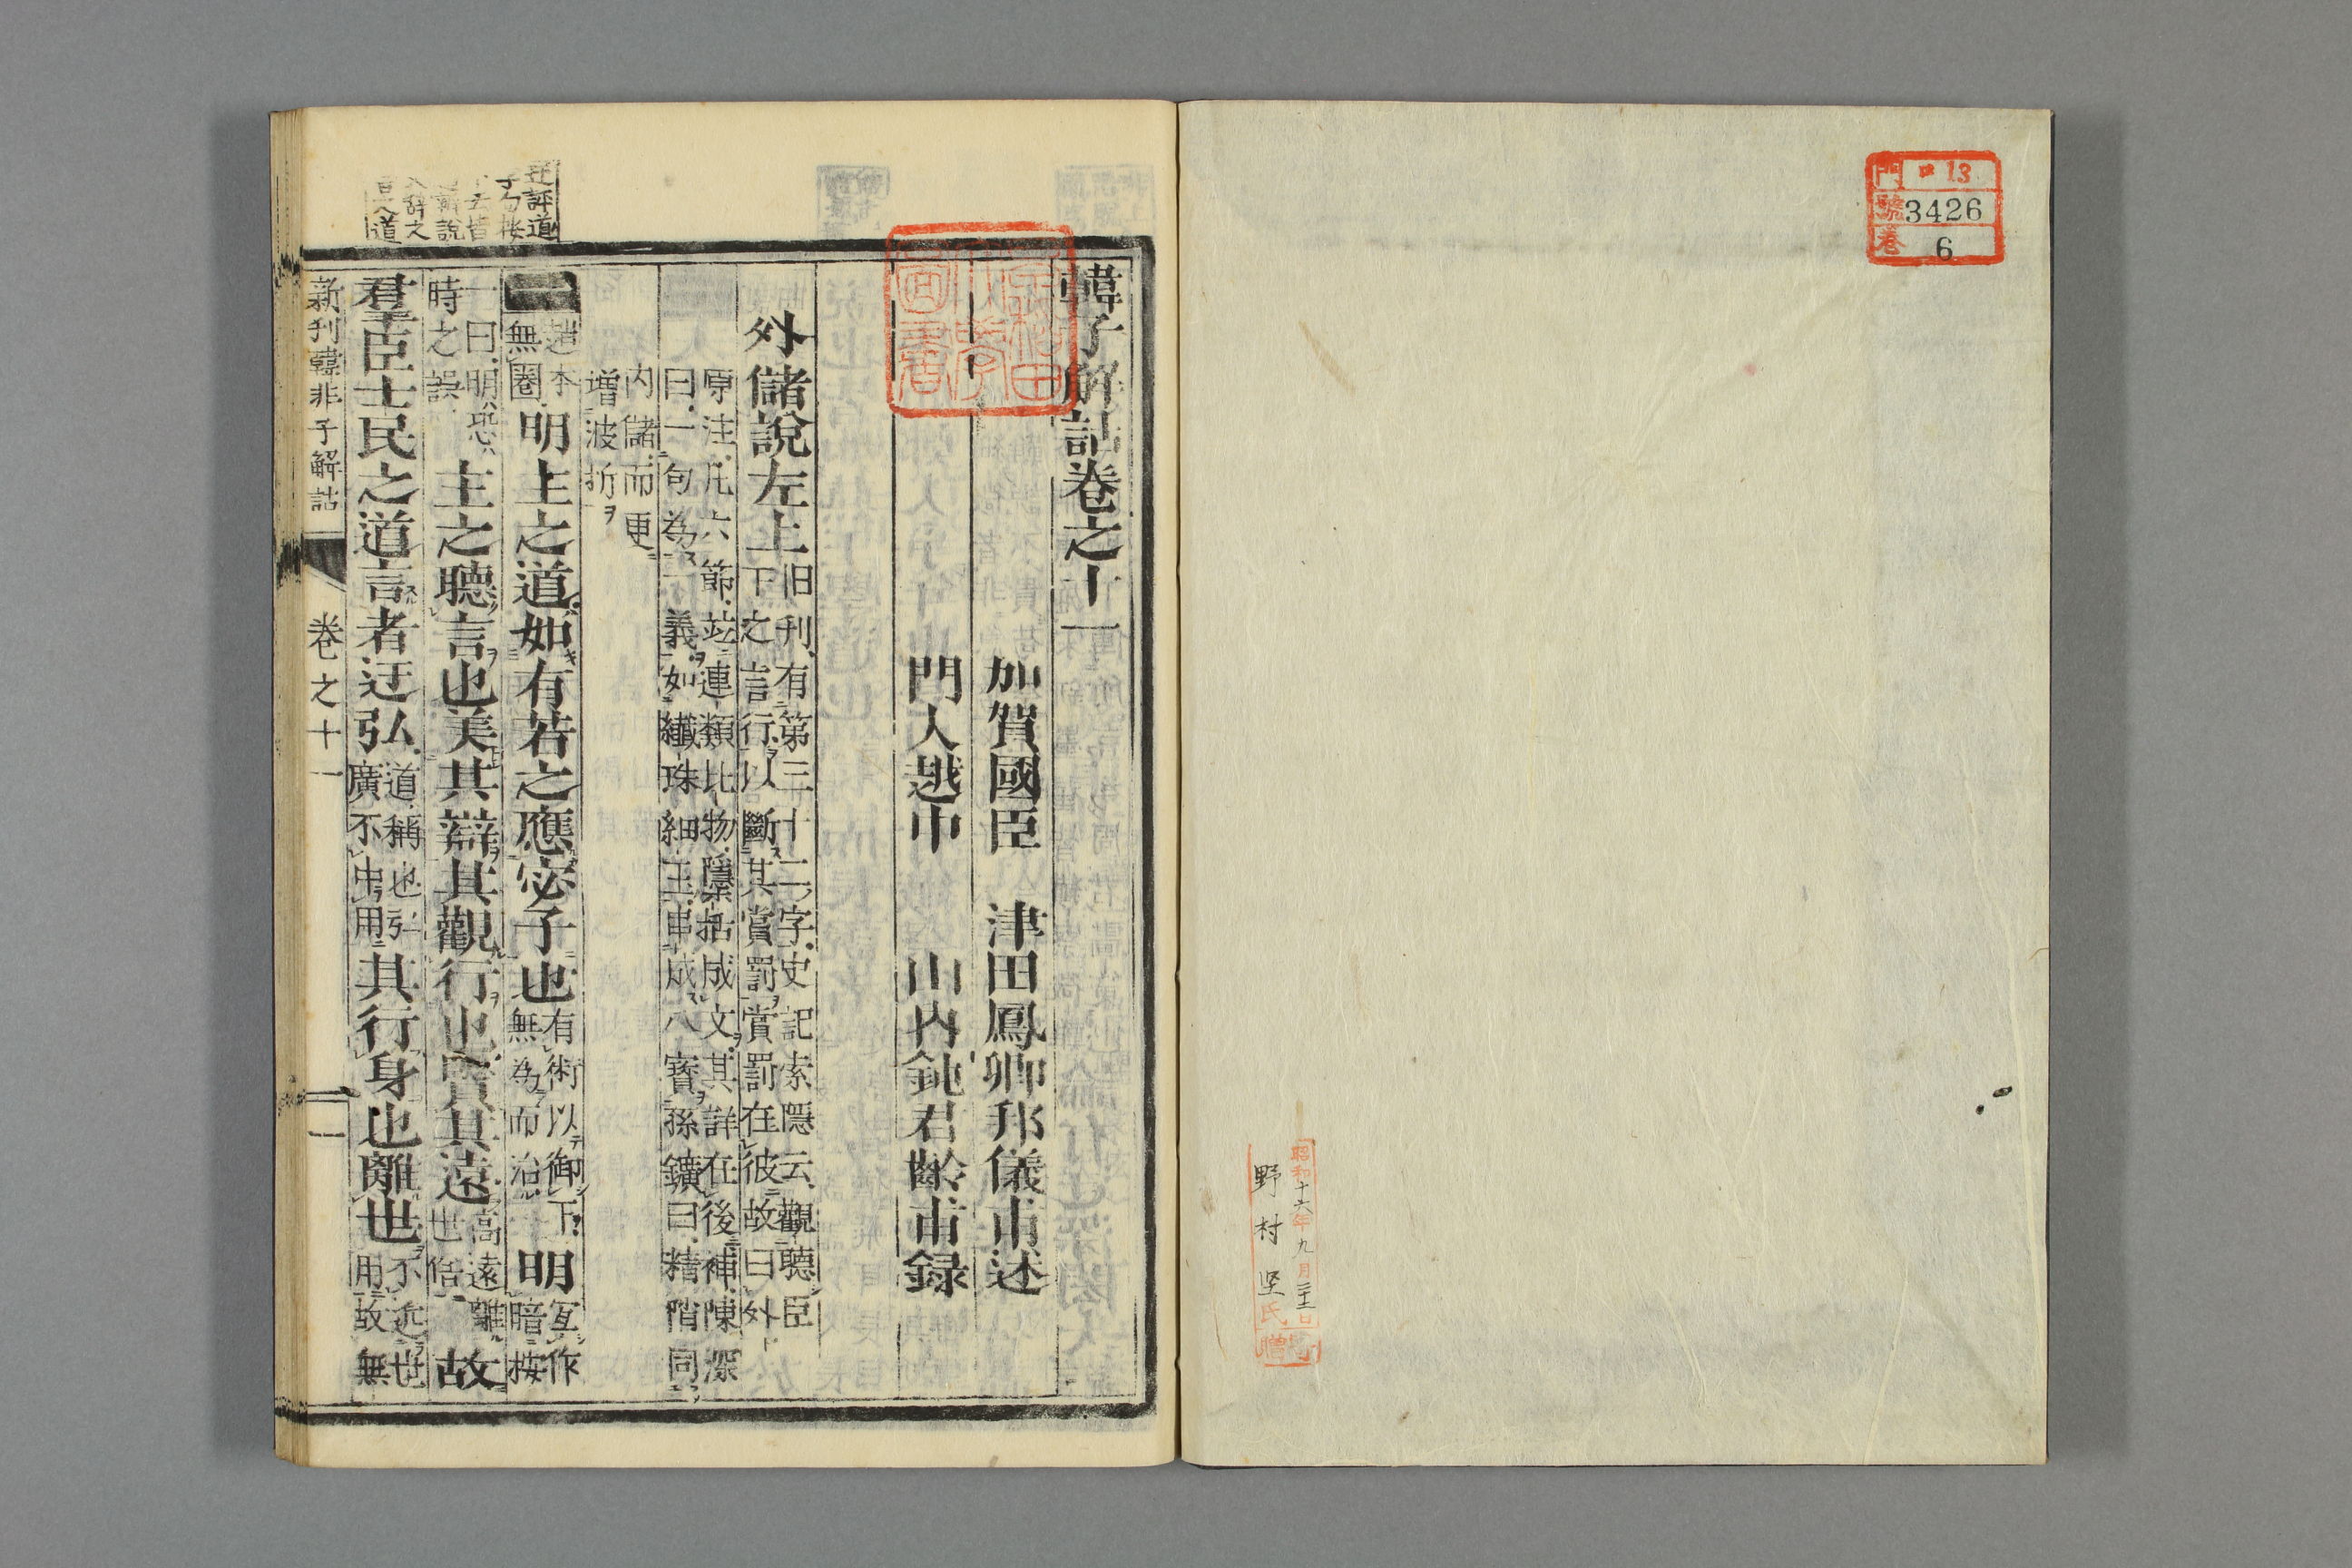 門 ロ 13
號 3426
卷 6
昭和十六年九月二十二日
野村堅氏贈
韓子解詁卷之十一
加賀國臣 津田鳳卿邦儀甫述
門人越中 山内鈍君齡甫録
外儲說左上
旧刋有第三十二字史記索隱云觀聽臣
下之言行以斷其賞罰賞罰在彼故曰外
原注凡六節竝連類比物隱括成文其詳在後補陳深
曰一句為一義如纖珠細玉串成八寶孫鑛曰精階同
内儲而更
增波折
一
趙本
無圏
明主之道如有若之應宓子也
有術以御下
無為而治
明
宜作
暗按
一曰明恐
時之誤
主之聽言也美其辯其觀行也賢其遠
高遠離
世俗
故
羣臣士民之道言者迂弘
道稱也弘
廣不中用
其行身也離世
不近世
用故無
新刋韓非子解詁 卷之十一 一